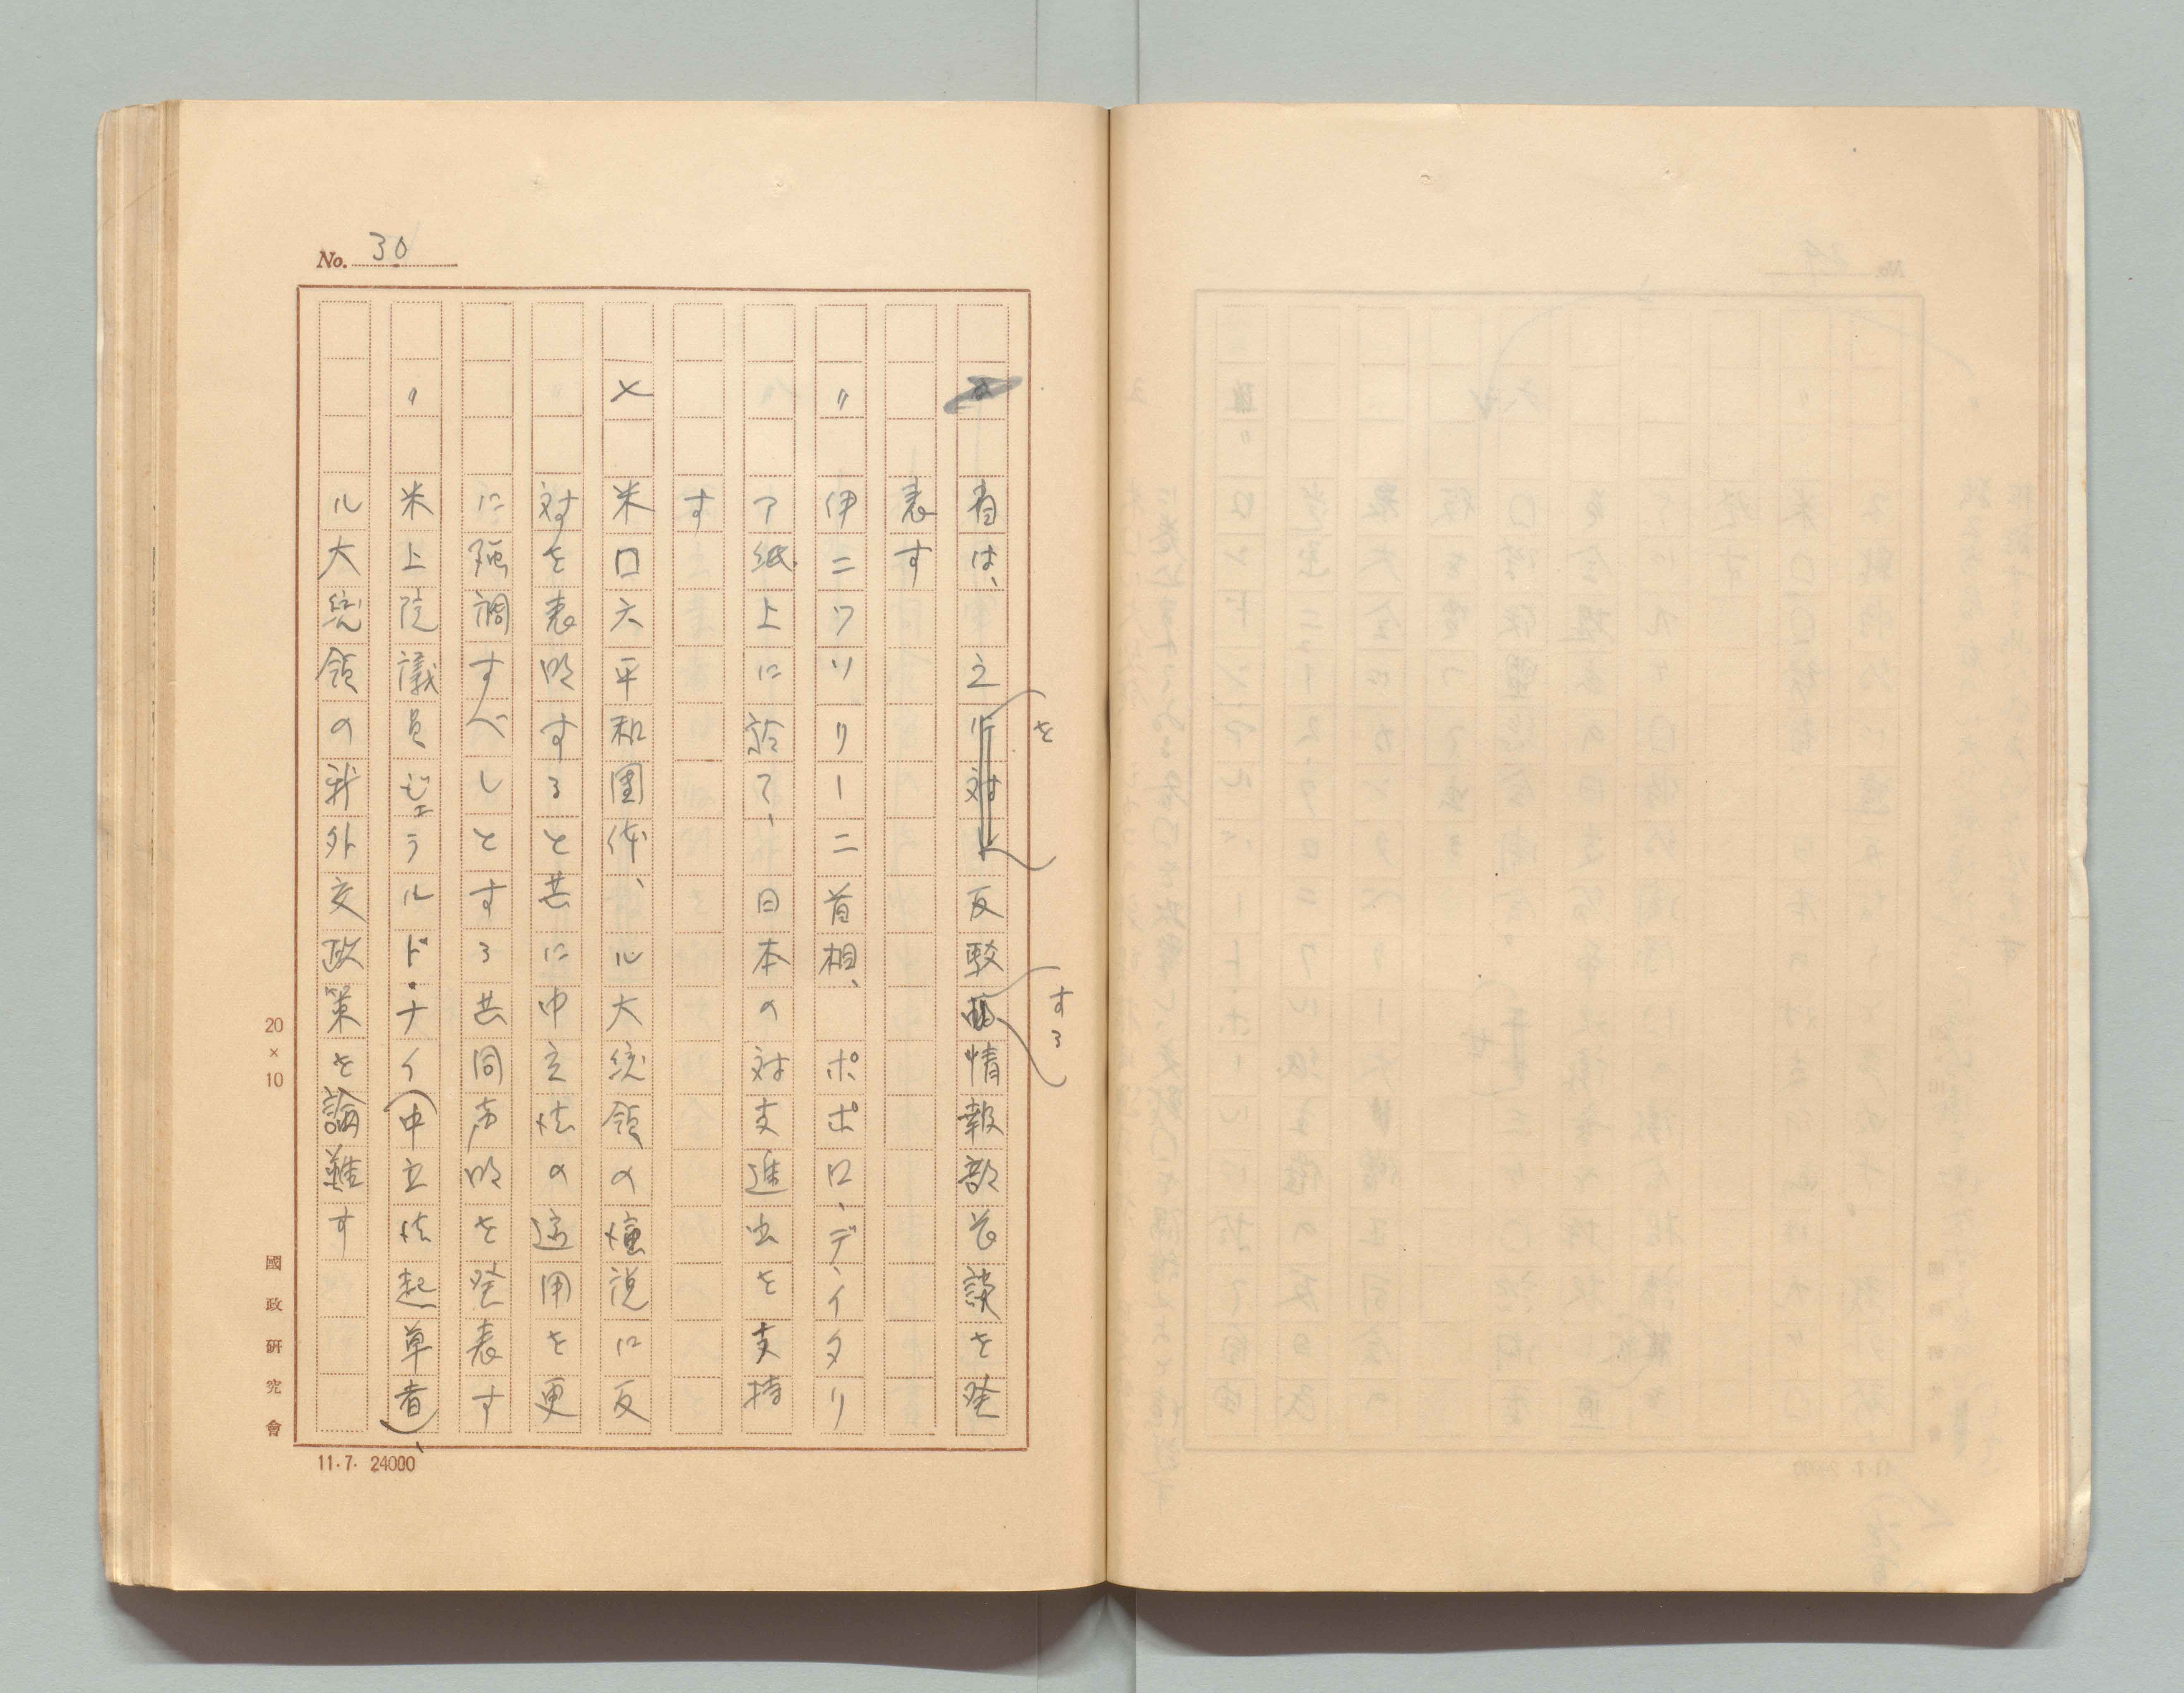 No. 30
省は、之を反駁する情報部長談を発
表す
〃 伊ニワソリーニ首相、ポポロ、デイタリ
ア紙上に於て、日本の対支進出を支持
す
× 米口六平和団体、ル大統領の演説に反
対を表明すると共に中立法の適用を更
に強調すべしとする共同声明を発表す
〃 米上院議員ジェラルド・ナイ(中立法起草者)、
ル大統領の新外交政策を論難す
20×10
國政研究會
11.7. 24000